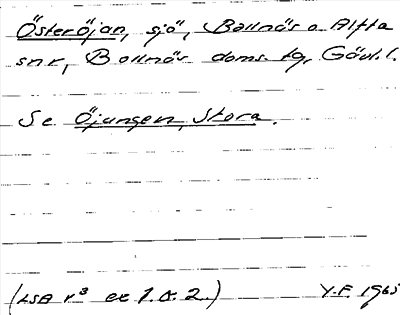 Österöjan, sjö, Bollnäs o. Alfta
snr, Bollnäs doms. tg, Gävl. l.
Se Öjungen, Stora.
(LSA r³ ex 1. o. 2.) Y.F. 1965